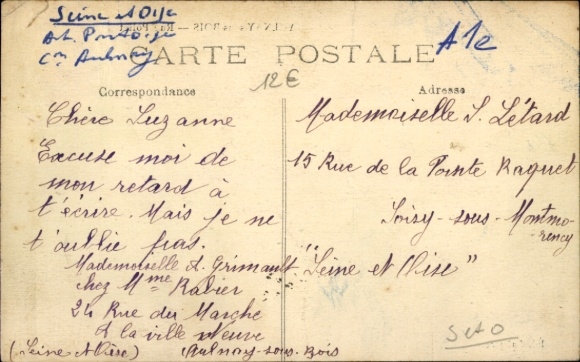 Seine et Oise
At. Pontoise
Con Aulnay
A12
CARTE POSTALE
12€
Correspondance
Chère Suzanne
Excuse moi de
mon retard à
t'écrire. Mais je ne
t'oublie pas.
Mademoiselle A. Grimault
chez Mme Rabier
24 Rue du Marché
à la ville Neuve
Aulnay-sous-Bois
(Seine et Oise)
Adresse
Mademoiselle S. Létard
15 Rue de la Pointe Raquet
Soisy-sous-Montmo-
rency
"Seine et Oise"
S et O